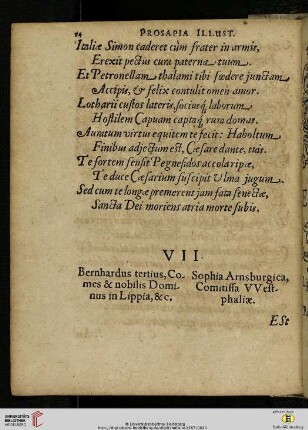 94 PROSAPIA ILLUST.
Italiæ Simon caderet cùm frater in armis,
Erexit pectus cura paterna tuum.
Et Petronellam thalami tibi fœdere junctam
Accipis, & felix contulit omen amor.
Lotharii custos lateris, sociusq́; laborum
Hostilem Capuam captaq́; rura domas.
Auratum virtus equitem te fecit: Haboltum
Finibus adjectum est, Cæsare dante, tuis.
Te fortem sensit Pegnesidos accola ripæ,
Te duce Cæsarium suscipit Ulma jugum.
Sed cum te longæ premerent jam fata senectæ,
Sancta Dei moriens atria morte subis.
VII
Bernhardus tertius, Co-
mes & nobilis Domi-
nus in Lippia, &c.
Sophia Arnsburgica,
Comitissa VVest-
phaliæ.
ESt
UNIVERSITÄTS-
BIBLIOTHEK
HEIDELBERG
© Universitätsbibliothek Heidelberg